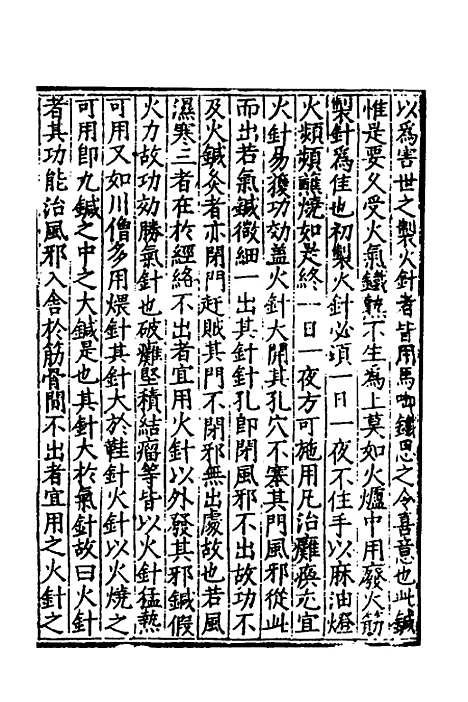 以爲害世之製火針者皆用馬啣鐵思之今喜意也此鍼
惟是要久受火氣鐵熱不生爲上莫如火爐中用廢火筋
製針爲佳也初製火針必須一日一夜不住手以麻油燈
火頻頻蘸燒如是終一日一夜方可施用凡治癱瘓尤宜
火針易獲功効蓋火針大開其孔穴不塞其門風邪從此
而出若氣鍼微細一出其針針孔即閉風邪不出故功不
及火鍼灸者亦閉門赶賊其門不閉邪無出處故也若風
濕寒三者在於經絡不出者宜用火針以外發其邪鍼假
火力故功効勝氣針也破癰堅積結瘤等皆以火針猛熱
可用又如川僧多用煨針其針大於鞋針火針以火燒之
可用即九鍼之中之大鍼是也其針大於氣針故曰火針
者其功能治風邪入舎於筋骨間不出者宜用之火針之